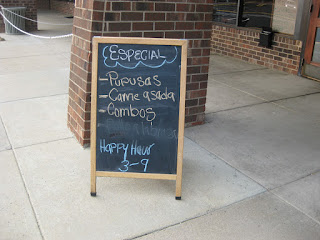 ESPECIAL
- Pupusas
- Carne asada
- Combos
Happy Hour
3-9